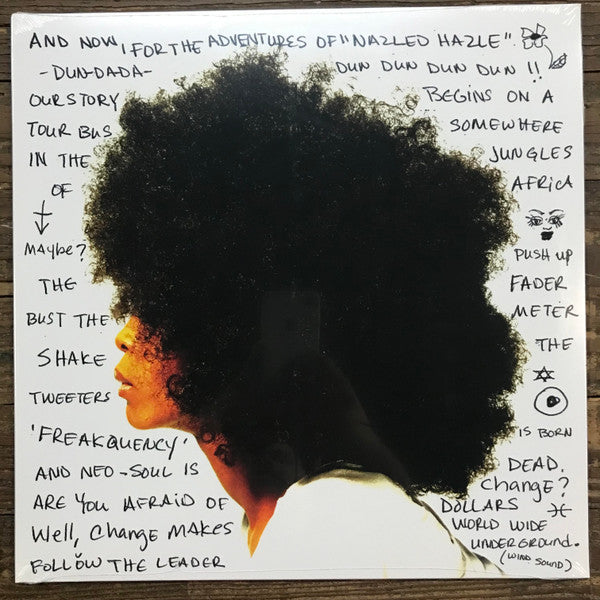 AND NOW, FOR THE ADVENTURES OF "NAZLED HAZLE"
-DUN-DADA- DUN DUN DUN DUN DUN !!
OUR STORY BEGINS ON A
TOUR BUS SOMEWHERE
IN THE JUNGLES
OF AFRICA
MAYbe? PUSH UP
THE FADER
BUST THE METER
SHAKE THE
TWEETERS
'FREAKQUENCY' IS BORN
AND NEO-SOUL IS DEAD.
ARE YOU AFRAID OF Change?
Well, Change MAKES DOLLARS
FOLLOW THE LEADER WORLD WIDE
UNDERGROUND.
(WIND SOUND)